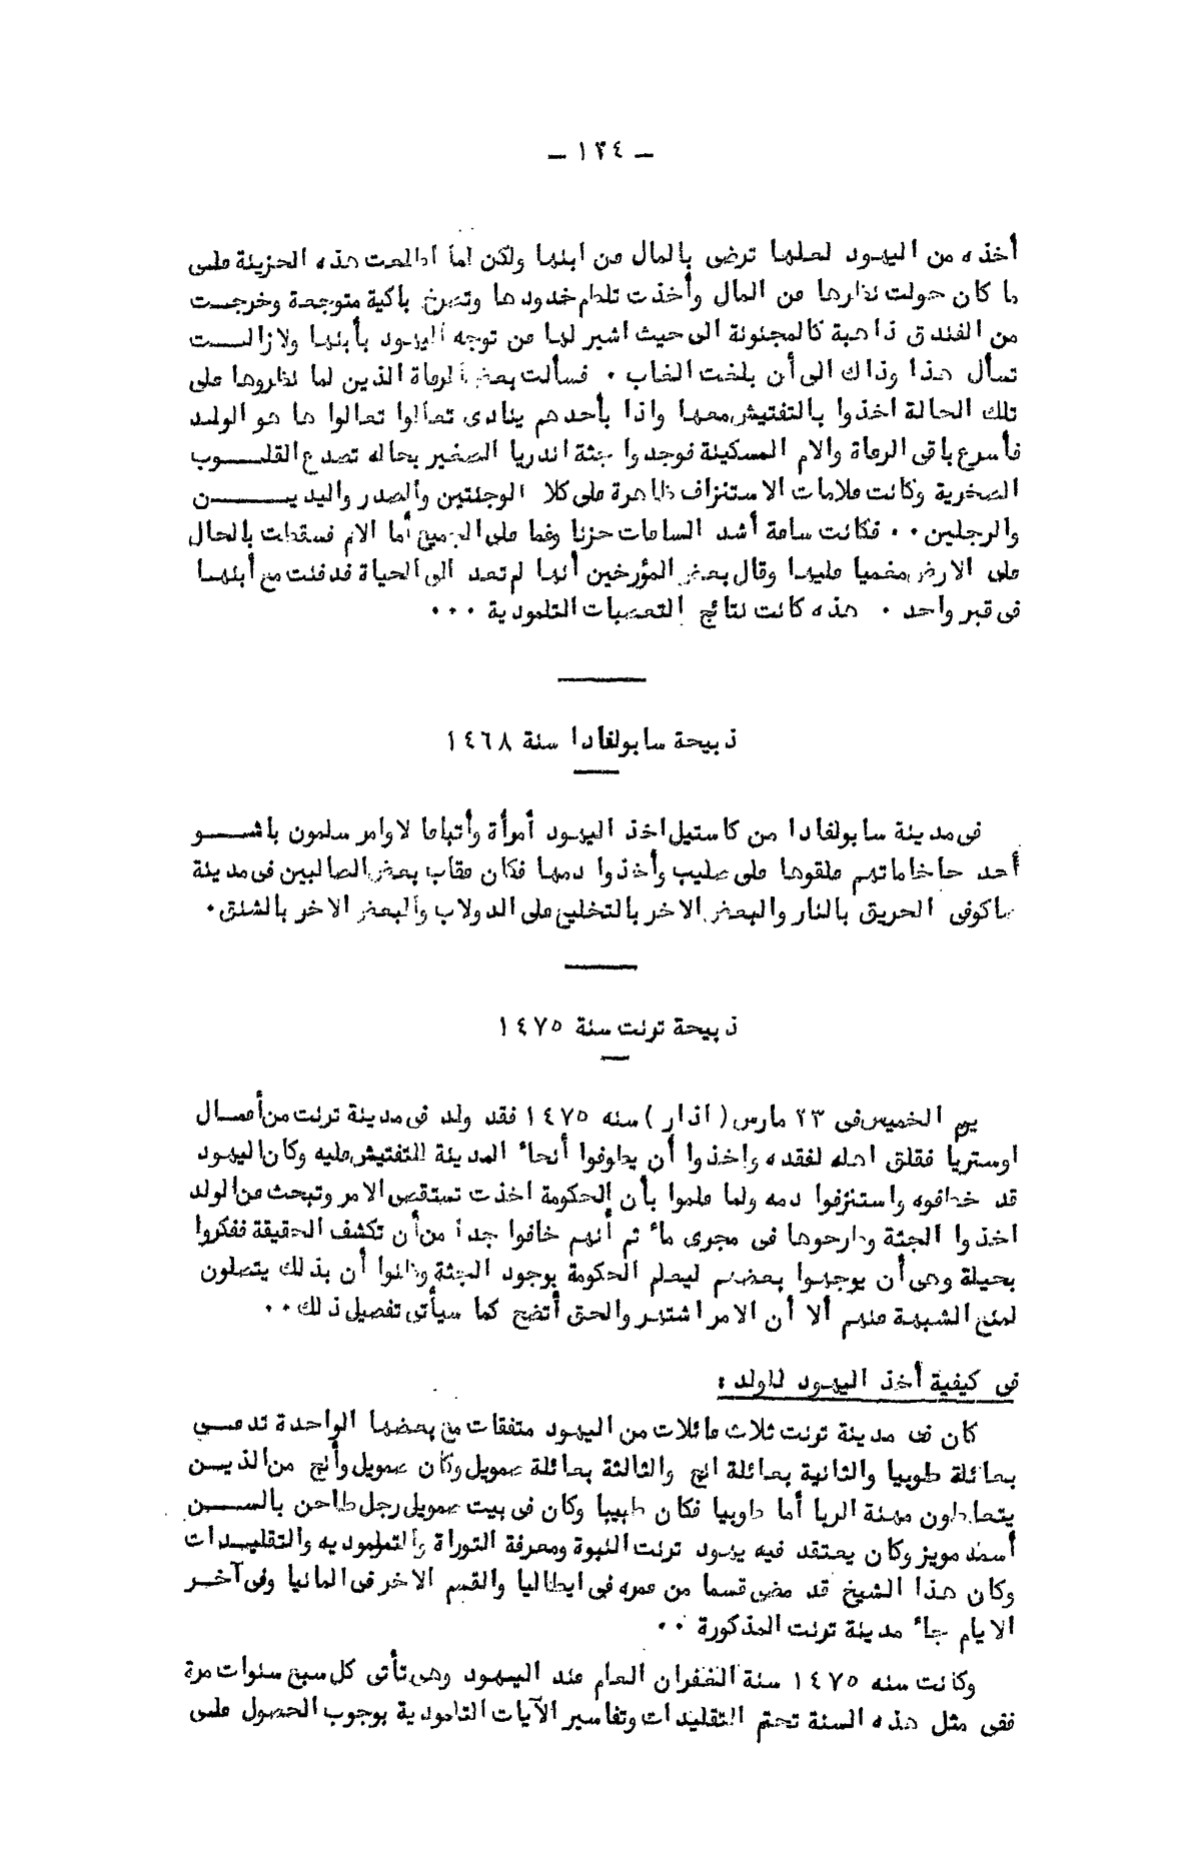 — ١٢٤ —
أخذه من اليهود لعلها ترضى بالمال عن ابنها ولكن لما اطلعت هذه الحزينة على
ما كان حولت نظارها عن المال وأخذت تلطم خدودها وتصرخ باكية متوجعة وخرجت
من الفندق ذاهبة كالمجنونة الى حيث اشير لها عن توجه اليهود بأبنها ولازالت
تسأل هذا وذاك الى أن بلغت الغاب . فسألت بعض الرعاة الذين لما نظروها على
تلك الحالة اخذوا بالتفتيش معها واذا بأحدهم ينادى تعالوا تعالوا ها هو الولد
فأسرع باقى الرعاة والام المسكينة فوجدوا جثة اندريا الصغير بحاله تصدع القلوب
الصخرية وكانت علامات الاستنزاف ظاهرة على كلا الوجنتين والصدر واليدين
والرجلين .. فكانت ساعة أشد الساعات حزنا وغما على الجميع أما الام فسقطت بالحال
على الارض مغميا عليها وقال بعض المؤرخين أنها لم تعد الى الحياة فدفنت مع أبنها
فى قبر واحد . هذه كانت نتائج التعصبات التلمودية ...
ذبيحة سابولفادا سنة ١٤٦٨
فى مدينة سابولفادا من كاستيل اخذ اليهود أمرأة وأتباعا لاوامر سلمون باشو
أحد حاخاماتهم علقوها على صليب وأخذوا دمها فكان عقاب بعض الصالبين فى مدينة
ماكوفى الحريق بالنار والبعض الاخر بالتخليع على الدولاب والبعض الاخر بالشنق.
ذبيحة ترنت سنة ١٤٧٥
يوم الخميس فى ٢٣ مارس (اذار) سنه ١٤٧٥ فقد ولد فى مدينة ترنت من أعمال
اوستريا فقلق اهله لفقده واخذوا أن يطوفوا أنحاء المدينة للتفتيش عليه وكان اليهود
قد خطفوه واستنزفوا دمه ولما علموا بأن الحكومة اخذت تستقصى الامر وتبحث عن الولد
اخذوا الجثة وطرحوها فى مجرى ماء ثم أنهم خافوا جدا من أن تكشف الحقيقة ففكروا
بحيلة وهى أن يوجهوا بعضهم ليعلم الحكومة بوجود الجثة وظنوا أن بذلك يتصلون
لمنع الشبهة عنهم ألا أن الامر اشتهر والحق أتضح كما سيأتى تفصيل ذلك ..
فى كيفية أخذ اليهود للولد :
كان فى مدينة ترنت ثلاث عائلات من اليهود متفقات مع بعضها الواحدة تدعى
بعائلة طوبيا والثانية بعائلة انج والثالثة بعائلة صمويل وكان صمويل وأنج من الذين
يتعاطون مهنة الربا أما طوبيا فكان طبيبا وكان فى بيت صمويل رجل طاعن بالسن
أسمه مويز وكان يعتقد فيه يهود ترنت النبوة ومعرفة التوراة والتلموديه والتقليدات
وكان هذا الشيخ قد مضى قسما من عمره فى ايطاليا والقسم الاخر فى المانيا وفى آخر
الايام جاء مدينة ترنت المذكورة ..
وكانت سنه ١٤٧٥ سنة الغفران العام عند اليهود وهى تأتى كل سبع سنوات مرة
ففى مثل هذه السنة تحتم التقليدات وتفاسير الآيات التلمودية بوجوب الحصول على